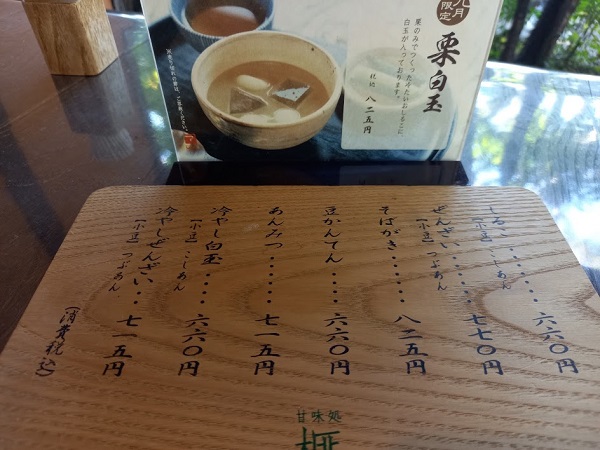 九月
限定
栗白玉
栗のみでつくったおしるこに、
白玉が入っております。
税込 八二五円
しるこ・・・・・・・六六〇円
【小豆】こしあん
ぜんざい・・・・・・七七〇円
【小豆】つぶあん
そばがき・・・・・・八二五円
豆かんてん・・・・・六六〇円
あんみつ・・・・・・七一五円
冷やし白玉・・・・六六〇円
【小豆】こしあん
冷やしぜんざい・・七一五円
【小豆】つぶあん
（消費税込）
甘味処